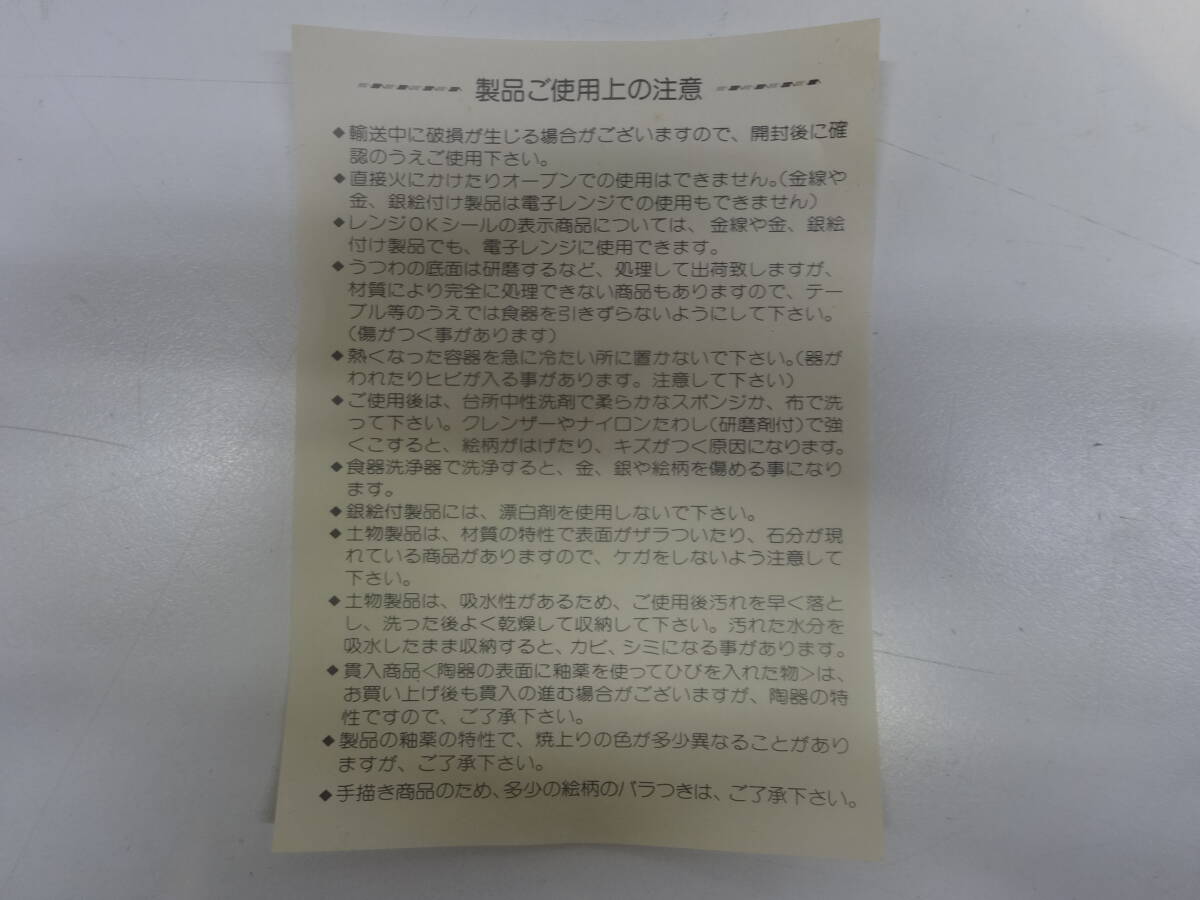 製品ご使用上の注意
◆輸送中に破損が生じる場合がございますので、開封後に確
認のうえご使用下さい。
◆直接火にかけたりオーブンでの使用はできません。(金線や
金、銀絵付け製品は電子レンジでの使用もできません)
◆レンジOKシールの表示商品については、金線や金、銀絵
付け製品でも、電子レンジに使用できます。
◆うつわの底面は研磨するなど、処理して出荷致しますが、
材質により完全に処理できない商品もありますので、テー
ブル等のうえでは食器を引きずらないようにして下さい。
(傷がつく事があります)
◆熱くなった容器を急に冷たい所に置かないで下さい。(器が
われたりヒビが入る事があります。注意して下さい)
◆ご使用後は、台所中性洗剤で柔らかなスポンジか、布で洗
って下さい。クレンザーやナイロンたわし(研磨剤付)で強
くこすると、絵柄がはげたり、キズがつく原因になります。
◆食器洗浄器で洗浄すると、金、銀や絵柄を傷める事になり
ます。
◆銀絵付製品には、漂白剤を使用しないで下さい。
◆土物製品は、材質の特性で表面がザラついたり、石分が現
れている商品がありますので、ケガをしないよう注意して
下さい。
◆土物製品は、吸水性があるため、ご使用後汚れを早く落と
し、洗った後よく乾燥して収納して下さい。汚れた水分を
吸水したまま収納すると、カビ、シミになる事があります。
◆貫入商品<陶器の表面に釉薬を使ってひびを入れた物>は、
お買い上げ後も貫入の進む場合がございますが、陶器の特
性ですので、ご了承下さい。
◆製品の釉薬の特性で、焼上りの色が多少異なることがあり
ますが、ご了承下さい。
◆手描き商品のため、多少の絵柄のバラつきは、ご了承下さい。